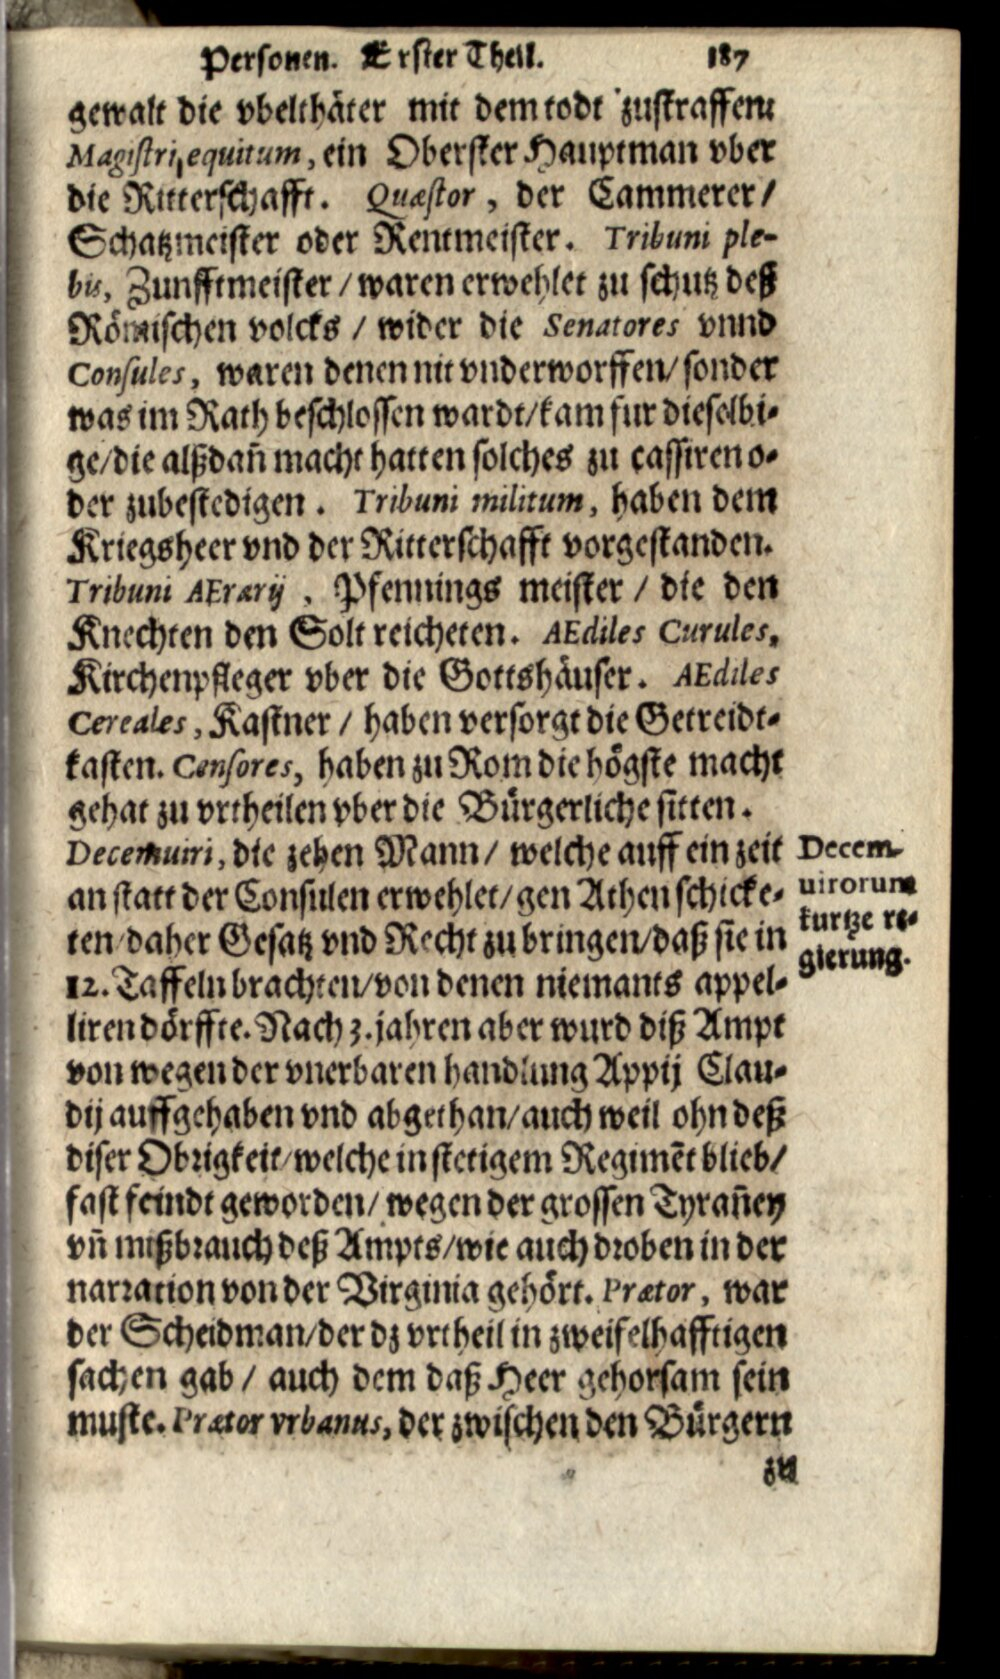 Personen. Erster Theil. 187
gewalt die vbelthäter mit dem todt zustraffen:
Magistri equitum, ein Oberster Hauptman vber
die Ritterschafft. Quæstor, der Cammerer/
Schatzmeister oder Rentmeister. Tribuni ple-
bis, Zunfftmeister / waren erwehlet zu schutz deß
Römischen volcks / wider die Senatores vnnd
Consules, waren denen nit vnderworffen/ sonder
was im Rath beschlossen wardt/kam fur dieselbi-
ge/die alßdañ macht hatten solches zu cassiren o-
der zubestedigen. Tribuni militum, haben dem
Kriegsheer vnd der Ritterschafft vorgestanden.
Tribuni AErarij, Pfennings meister / die den
Knechten den Solt reicheten. AEdiles Curules,
Kirchenpfleger vber die Gottshäuser. AEdiles
Cereales, Kastner / haben versorgt die Getreidt-
kasten. Censores, haben zu Rom die högste macht
gehat zu vrtheilen vber die Bürgerliche sitten.
Decemuiri, die zehen Mann/ welche auff ein zeit
an statt der Consulen erwehlet/gen Athen schicke-
ten/daher Gesatz vnd Recht zu bringen/daß sie in
12. Taffeln brachten/von denen niemants appel-
liren dörffte. Nach 3. jahren aber wurd diß Ampt
von wegen der vnerbaren handlung Appij Clau-
dij auffgehaben vnd abgethan/auch weil ohn deß
diser Obrigkeit/welche in stetigem Regimẽt blieb/
fast feindt geworden/ wegen der grossen Tyrañey
vñ mißbrauch deß Ampts/wie auch droben in der
narration von der Virginia gehört. Prætor, war
der Scheidman/der dz vrtheil in zweifelhafftigen
sachen gab / auch dem daß Heer gehorsam sein
muste. Prætor vrbanus, der zwischen den Bürgern
zu
Decem-
uirorum
kurtze re-
gierung.